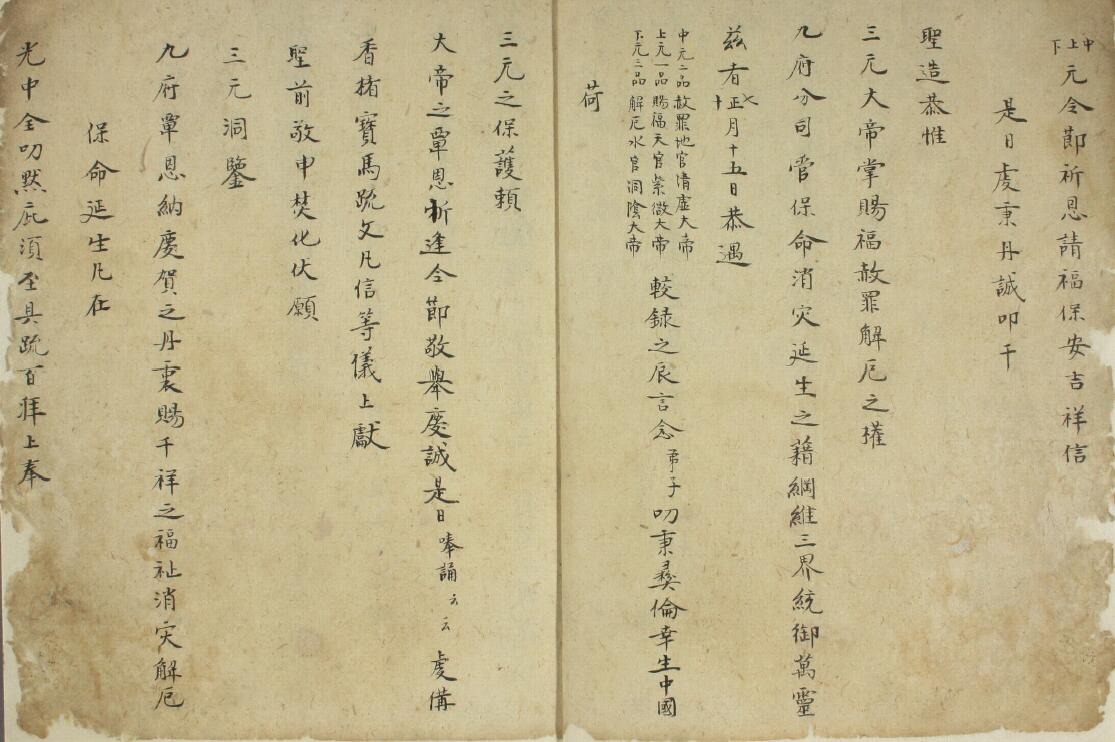 中上下元令節祈恩請福保安吉祥信
是日虔秉丹誠叩干
聖造恭惟
三元大帝掌賜福赦罪解厄之權
九府分司管保命消灾延生之藉綱維三界統御萬靈
茲者七正十月十五日恭遇
中元二品赦罪地官清虛大帝
上元一品賜福天官紫微大帝
下元三品解厄水官洞陰大帝
較録之辰言念弟子叨秉彜倫幸生中國
荷
三元之保護賴
大帝之覃恩折逢令節敬舉慶誠是日唪誦云云虔備
香楮寶馬疏文凡信等儀上獻
聖前敬申焚化伏願
三元洞鑒
九府覃恩納慶賀之丹衷賜千祥之福祉消灾解厄
保命延生凡在
光中全叨黙庇須至具疏百拜上奉